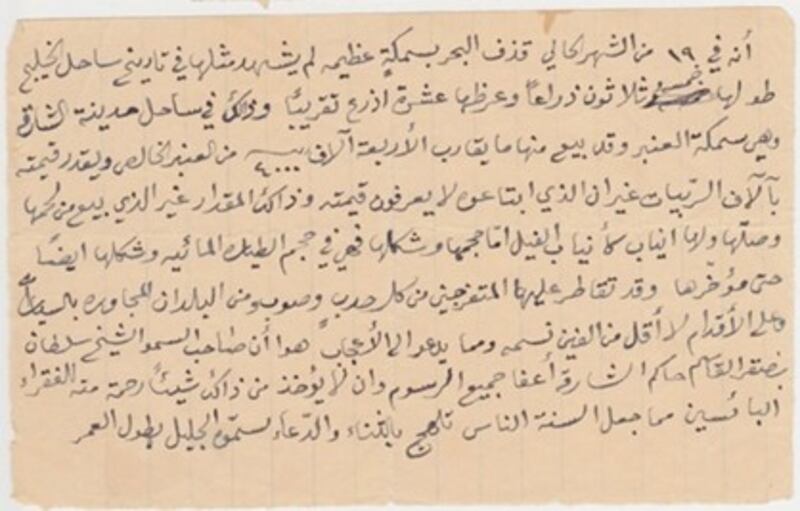 أنه في ١٩ من الشهر الحالي قذف البحر بسمكةٍ عظيمه لم يشهد مثلها في تاريخ ساحل الخليج
طولها خمسة وثلاثون ذراعاً وعرظها عشرة اذرع تقريبًا وذالك في ساحل مدينة الشارقة
وهي سمكة العنبر وقد بيع منها ما يقارب الأربعة آلاف ٤٠٠٠ من العنبر الخالص ويقدر قيمته
بآلاف الربيات غير ان الذي ابتاعوه لا يعرفون قيمته وذالك المقدار غير الذي بيع من لحمها
وصلّها ولها انياب كأنياب الفيل امّا حجمها وشكلها فهي في حجم الطيارة المائيه وشكلها ايضًا
حتى مؤخّرها وقد تقاطر عليها المتفرجين من كل حدب وصوب ومن البلدان المجاوره بالسيارات
وعلى الأقدام لا أقل من الفين نسمه ومما يدعو الى الأعجاب هوا أن صاحب السمو الشيخ سلطان
بن صقر القاسم حاكم الشارقة أعفا جميع الرسوم وان لا يؤخذ من ذالك شيئاً رحمة منه الفقراء
البائسين مما جعل السنة الناس تلهج بالثناء والدّعاء لسموّه الجليل بطول العمر